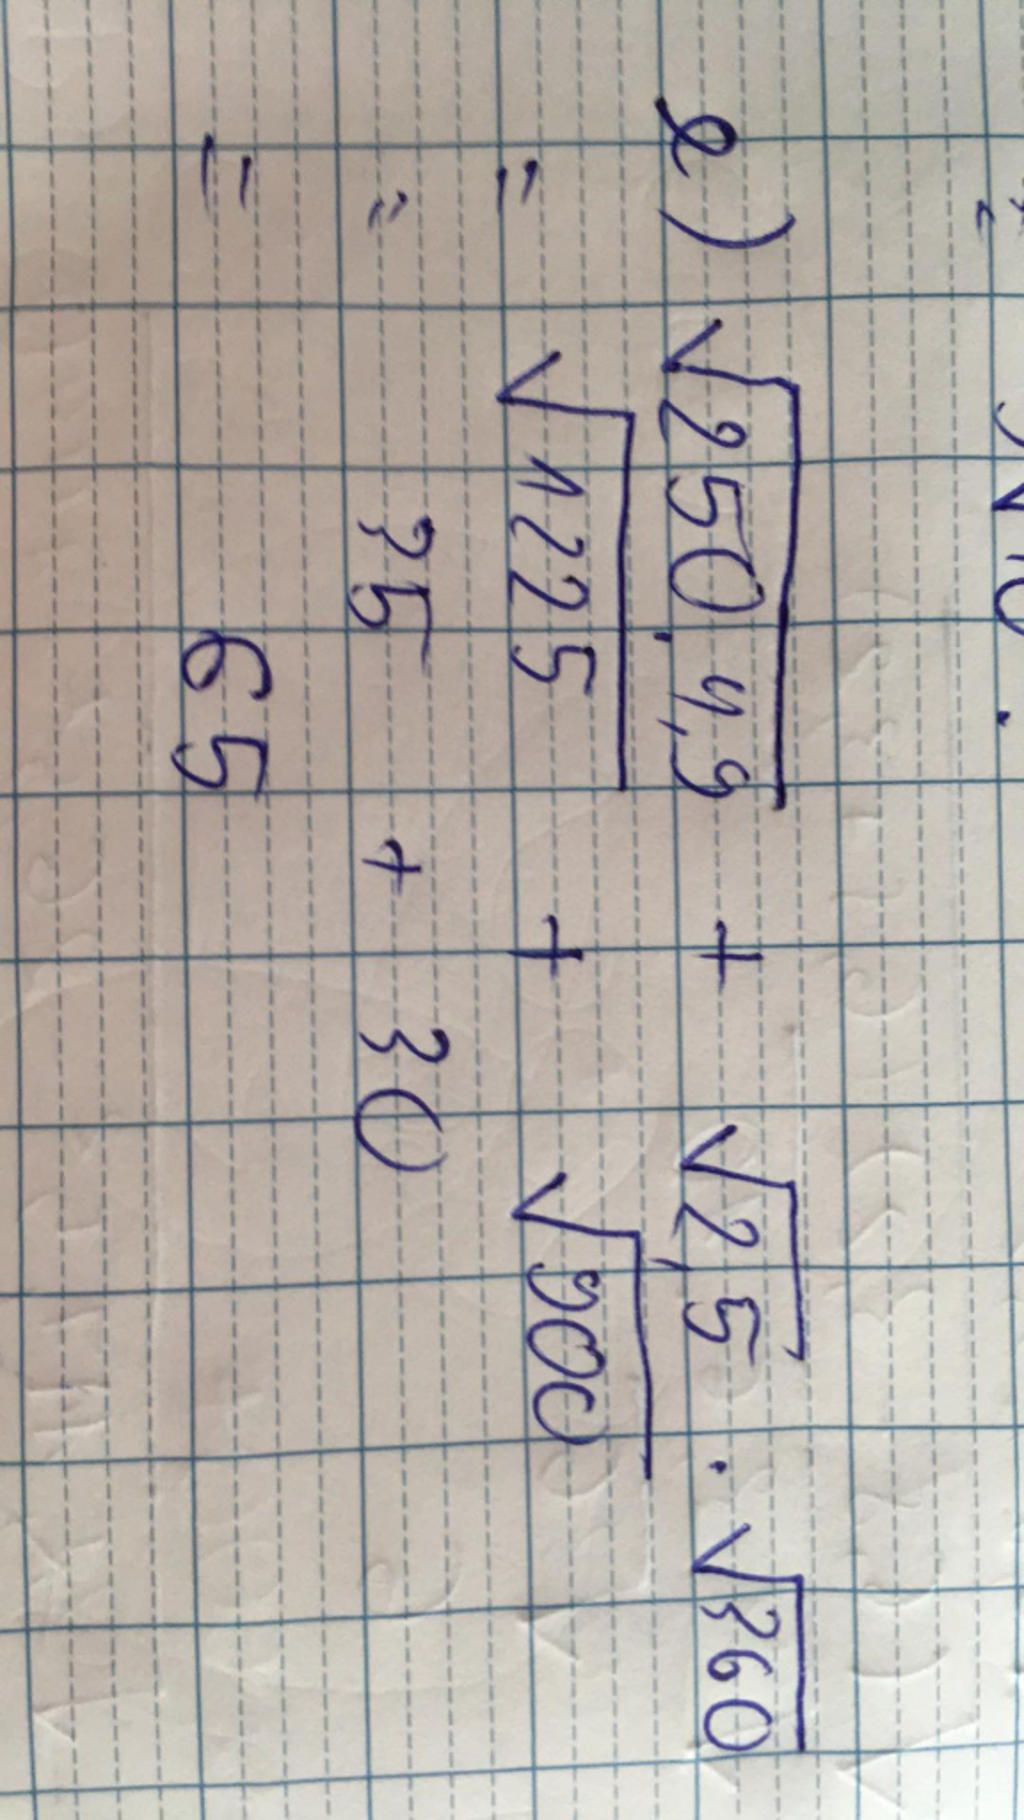 e) √250.4,9 + √2,5 . √360
= √1225 + √900
= 35 + 30
= 65